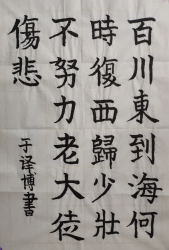 百川東到海何
時復西歸少壯
不努力老大徒
傷悲
于译博書